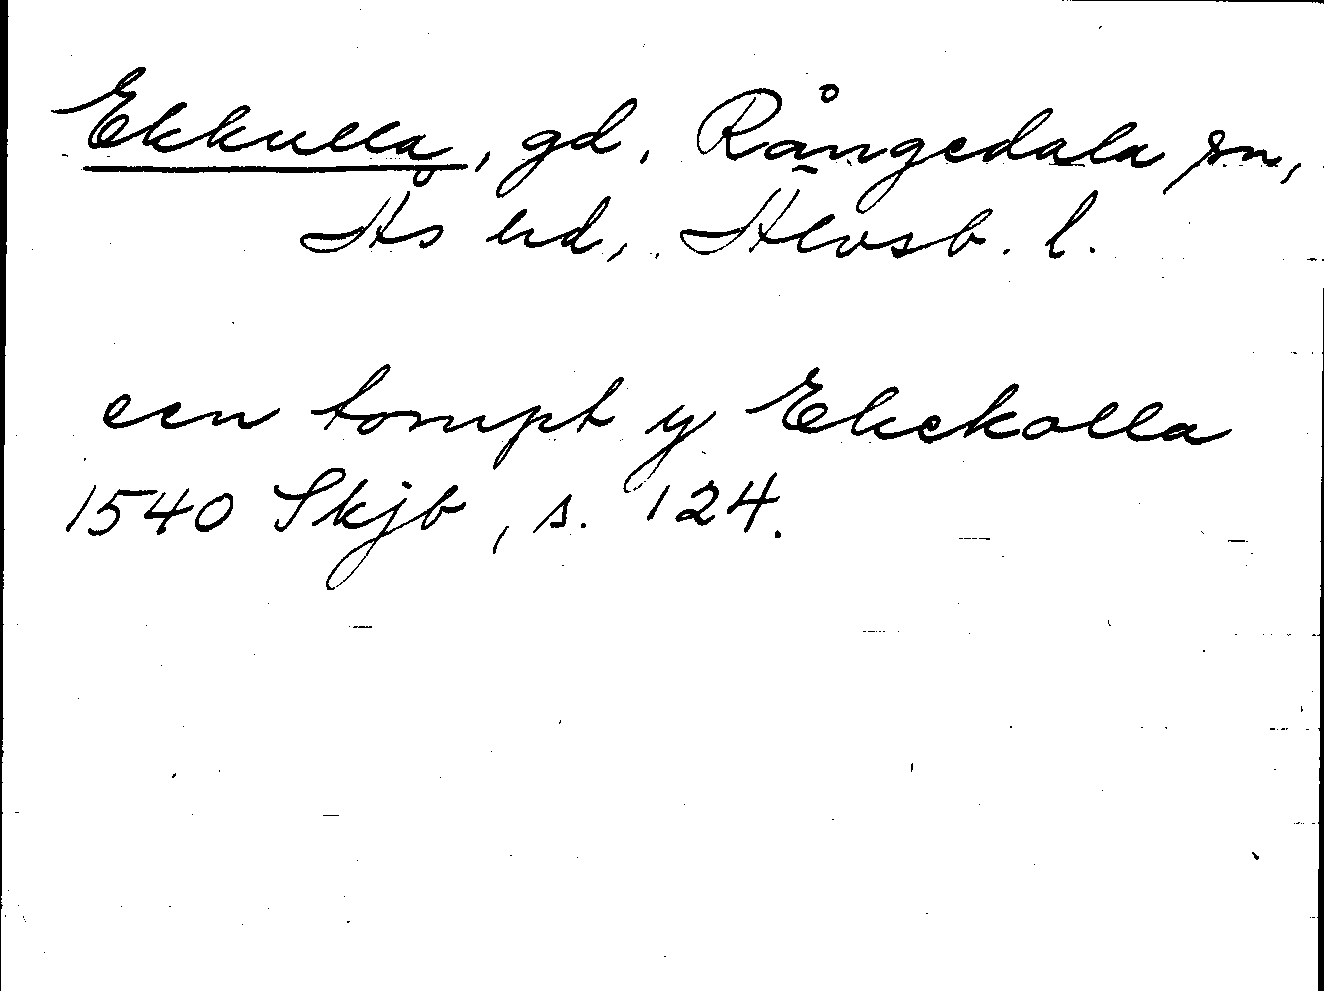 Ekkulla, gd, Rångedala sn,
Ås hd, Älvsb. l.
een tompt y Ekekolla
1540 Skjb, s. 124.